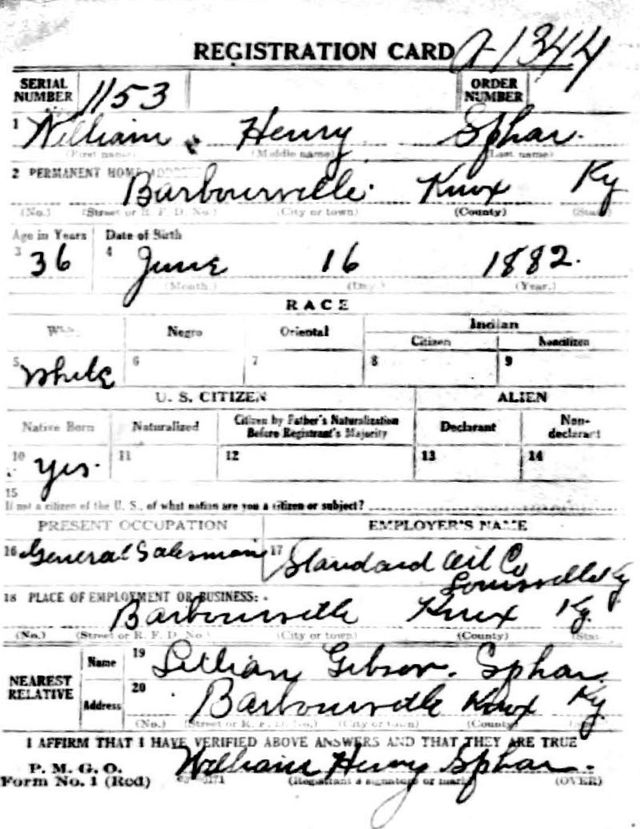 REGISTRATION CARD A-1344
SERIAL NUMBER 1153 ORDER NUMBER
1 William Henry Sphar.
(First name) (Middle name) (Last name)
2 PERMANENT HOME Barbourville. Knox Ky
(No.) (Street or R. F. D. No.) (City or town) (County) (State)
Age in Years Date of Birth
3 36 4 June 16 1882.
(Month.) (Day.) (Year.)
RACE
Negro Oriental Indian
Citizen Noncitizen
5 White 6 7 8 9
U. S. CITIZEN ALIEN
Native Born Naturalized Citizen by Father's Naturalization Before Registrant's Majority Declarant Non-declarant
10 Yes. 11 12 13 14
15
If not a citizen of the U. S., of what nation are you a citizen or subject?
PRESENT OCCUPATION EMPLOYER'S NAME
16 General Salesman 17 Standard Oil Co
Louisville Ky
18 PLACE OF EMPLOYMENT OR BUSINESS:
Barbourville Knox Ky.
(No.) (Street or R. F. D. No.) (City or town) (County) (State
NEAREST RELATIVE Name 19 Lillian Gibson. Sphar.
Address 20 Barbourville Knox Ky
(No.) (Street or R. F. D. No.) (City or town) (County)
I AFFIRM THAT I HAVE VERIFIED ABOVE ANSWERS AND THAT THEY ARE TRUE
P. M. G. O.
Form No. 1 (Red) William Henry Sphar.
(Registrant's signature or mark) (OVER)